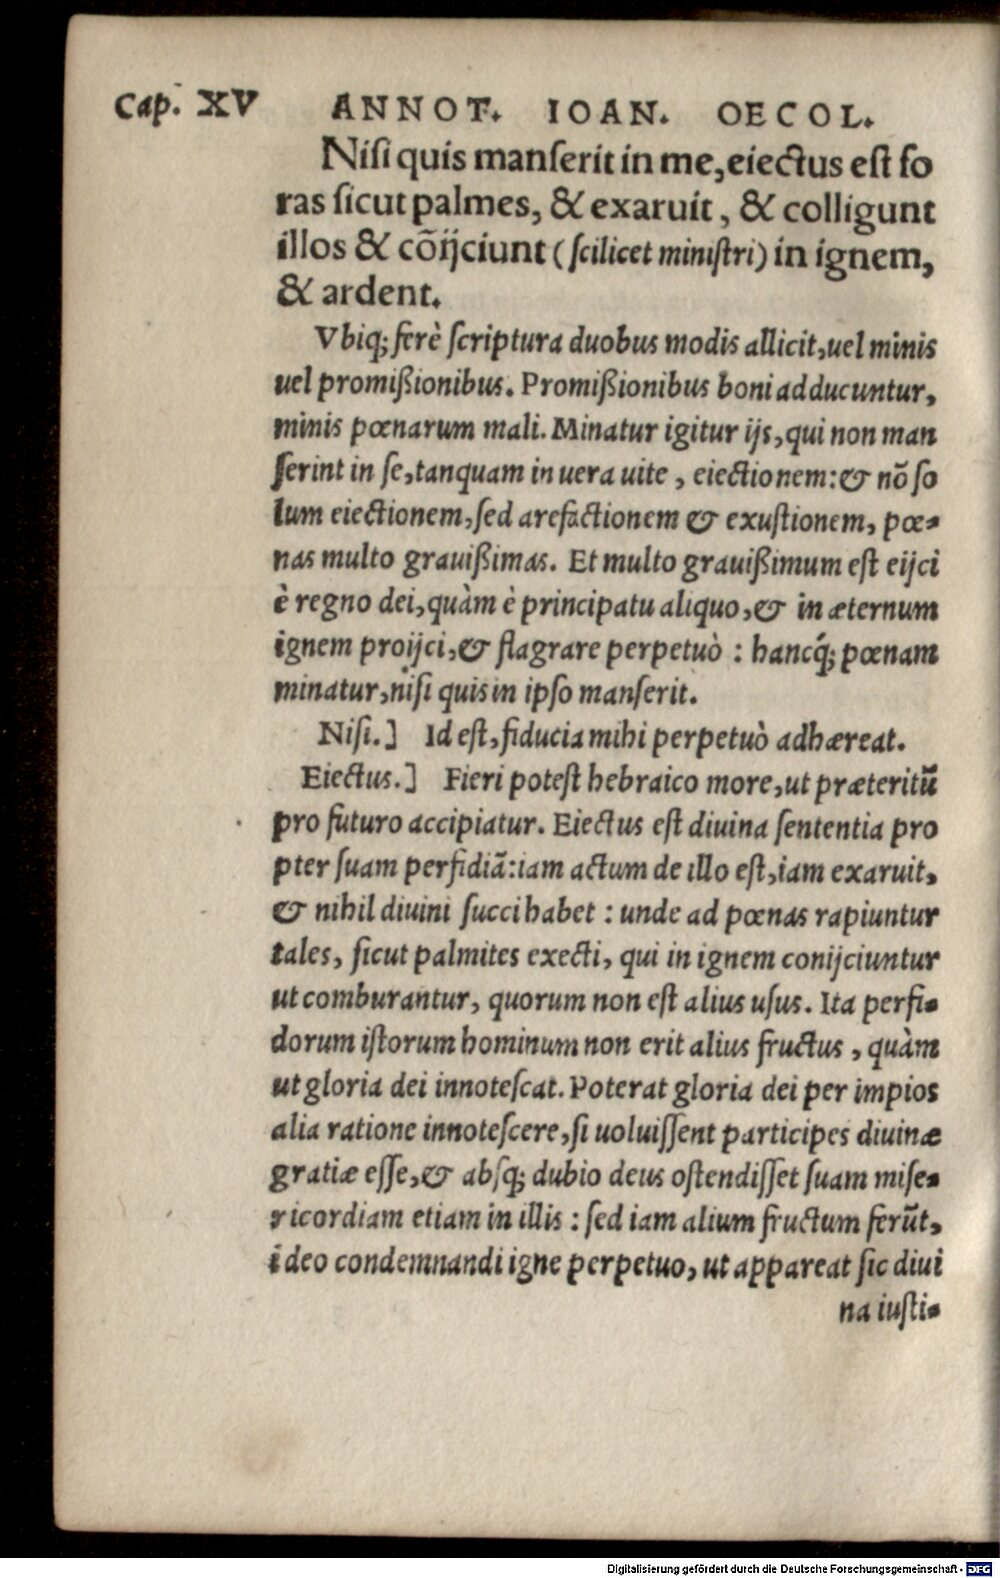 Cap. XV ANNOT. IOAN. OECOL.
Nisi quis manserit in me, eiectus est fo
ras sicut palmes, & exaruit, & colligunt
illos & cõijciunt (scilicet ministri) in ignem,
& ardent.
Vbiq; ferè scriptura duobus modis allicit, uel minis
uel promißionibus. Promißionibus boni adducuntur,
minis pœnarum mali. Minatur igitur ijs, qui non man
serint in se, tanquam in uera uite, eiectionem: & nõ so
lum eiectionem, sed arefactionem & exustionem, pœ-
nas multo grauißimas. Et multo grauißimum est eijci
è regno dei, quàm è principatu aliquo, & in æternum
ignem proijci, & flagrare perpetuò : hancq́; pœnam
minatur, nisi quis in ipso manserit.
Nisi.] Id est, fiducia mihi perpetuò adhæreat.
Eiectus.] Fieri potest hebraico more, ut præteritũ
pro futuro accipiatur. Eiectus est diuina sententia pro
pter suam perfidiã: iam actum de illo est, iam exaruit,
& nihil diuini succi habet : unde ad pœnas rapiuntur
tales, sicut palmites execti, qui in ignem conijciuntur
ut comburantur, quorum non est alius usus. Ita perfi-
dorum istorum hominum non erit alius fructus, quàm
ut gloria dei innotescat. Poterat gloria dei per impios
alia ratione innotescere, si uoluissent participes diuinæ
gratiæ esse, & absq; dubio deus ostendisset suam mise-
ricordiam etiam in illis : sed iam alium fructum ferũt,
ideo condemnandi igne perpetuo, ut appareat sic diui
na iusti-
Digitalisierung gefördert durch die Deutsche Forschungsgemeinschaft - DFG